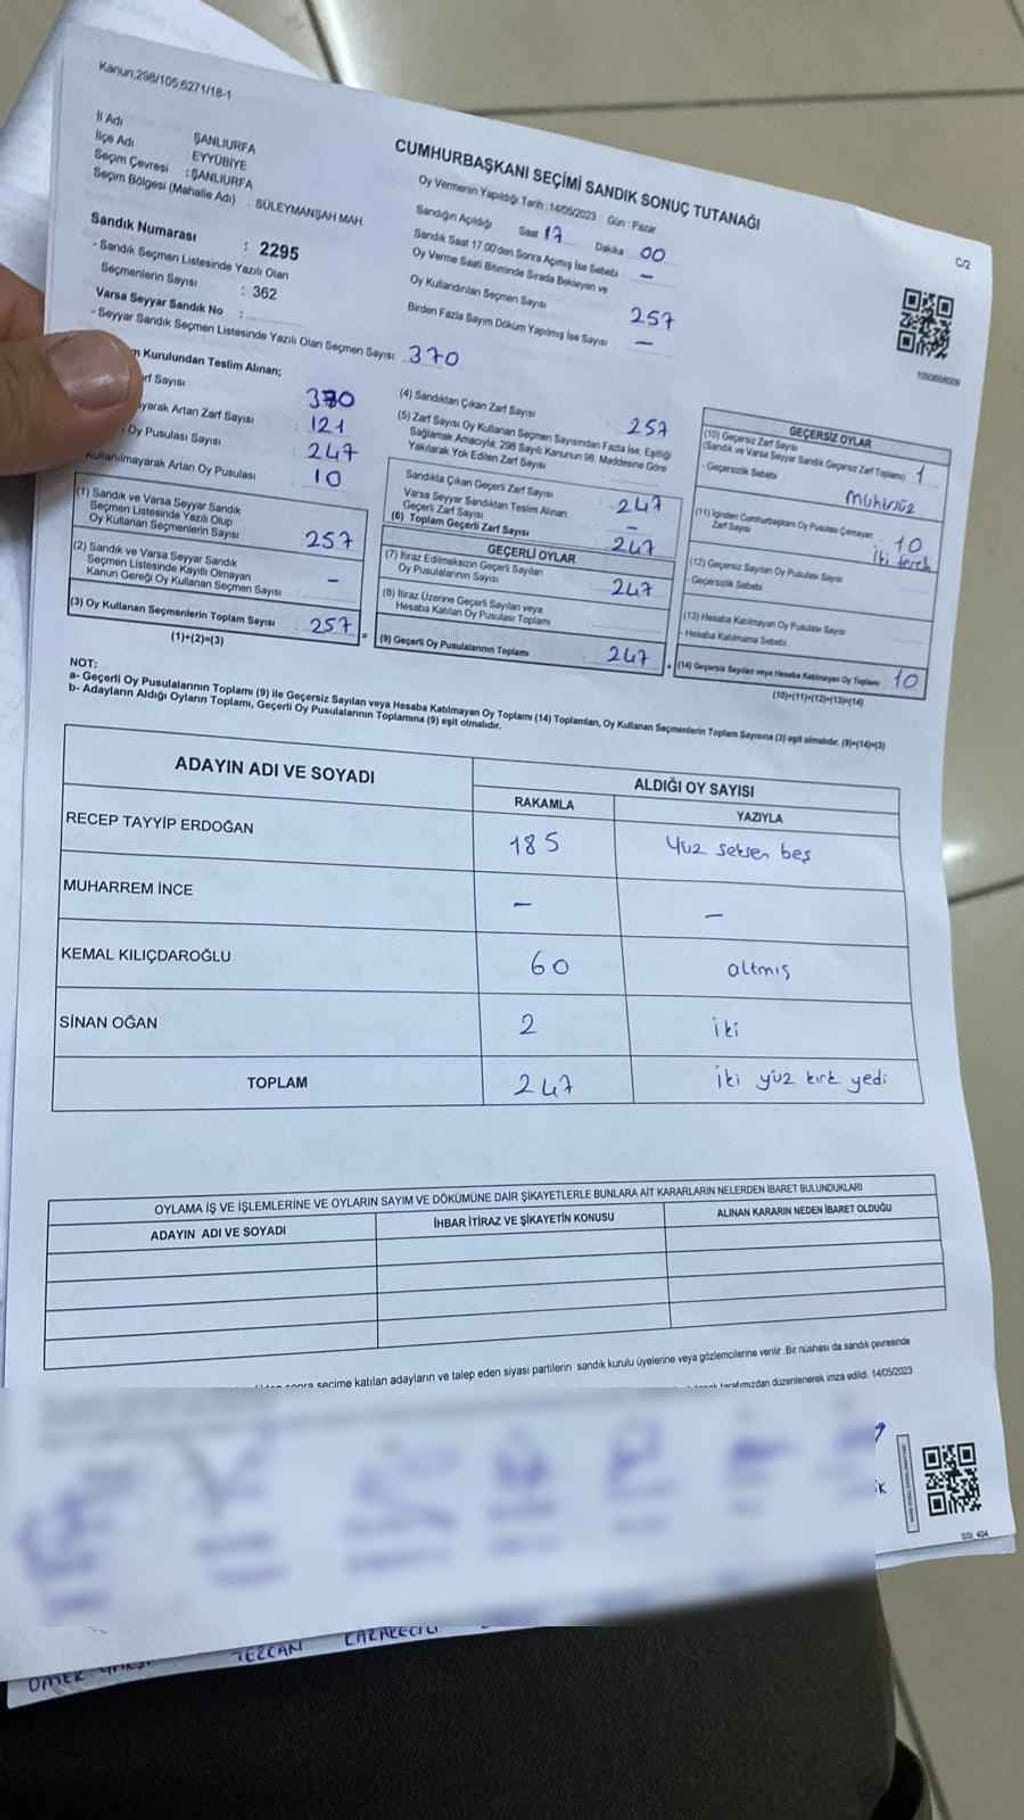 Kanun;298/105;6271/18-1
C/2
İl Adı ŞANLIURFA
İlçe Adı EYYÜBİYE
Seçim Çevresi : ŞANLIURFA
Seçim Bölgesi (Mahalle Adı) SÜLEYMANŞAH MAH
Sandık Numarası : 2295
- Sandık Seçmen Listesinde Yazılı Olan
Seçmenlerin Sayısı : 362
Varsa Seyyar Sandık No :
- Seyyar Sandık Seçmen Listesinde Yazılı Olan Seçmen Sayısı 370
CUMHURBAŞKANI SEÇİMİ SANDIK SONUÇ TUTANAĞI
Oy Vermenin Yapıldığı Tarih : 14/05/2023 Gün : Pazar
Sandığın Açıldığı Saat 17 Dakika 00
Sandık Saat 17.00'den Sonra Açılmış İse Sebebi —
Oy Verme Saati Bitiminde Sırada Bekleyen ve
Oy Kullandırılan Seçmen Sayısı 257
Birden Fazla Sayım Döküm Yapılmış İse Sayısı —
Kurulundan Teslim Alınan;
Sayısı 370
Artan Zarf Sayısı 121
Oy Pusulası Sayısı 247
Kullanılmayarak Artan Oy Pusulası 10
(1) Sandık ve Varsa Seyyar Sandık
Seçmen Listesinde Yazılı Olup
Oy Kullanan Seçmenlerin Sayısı 257
(2) Sandık ve Varsa Seyyar Sandık
Seçmen Listesinde Kayıtlı Olmayan
Kanun Gereği Oy Kullanan Seçmen Sayısı –
(3) Oy Kullanan Seçmenlerin Toplam Sayısı 257 =
(1)+(2)=(3)
(4) Sandıktan Çıkan Zarf Sayısı 257
(5) Zarf Sayısı Oy Kullanan Seçmen Sayısından Fazla İse, Eşitliği
Sağlamak Amacıyla, 298 Sayılı Kanunun 98. Maddesine Göre
Yakılarak Yok Edilen Zarf Sayısı
Sandıkta Çıkan Geçerli Zarf Sayısı 247
Varsa Seyyar Sandıktan Teslim Alınan
Geçerli Zarf Sayısı –
(6) Toplam Geçerli Zarf Sayısı 247
GEÇERLİ OYLAR
(7) İtiraz Edilmeksizin Geçerli Sayılan
Oy Pusulalarının Sayısı 247
(8) İtiraz Üzerine Geçerli Sayılan veya
Hesaba Katılan Oy Pusulası Toplamı
(9) Geçerli Oy Pusulalarının Toplamı 247 +
GEÇERSİZ OYLAR
(10) Geçersiz Zarf Sayısı
(Sandık ve Varsa Seyyar Sandık Geçersiz Zarf Toplamı) 1
- Geçersizlik Sebebi
Mühürsüz
(11) İçinden Cumhurbaşkanı Oy Pusulası Çıkmayan
Zarf Sayısı 10
iki
(12) Geçersiz Sayılan Oy Pusulası Sayısı
- Geçersizlik Sebebi
(13) Hesaba Katılmayan Oy Pusulası Sayısı
- Hesaba Katılmama Sebebi
(14) Geçersiz Sayılan veya Hesaba Katılmayan Oy Toplamı 10
(10)+(11)+(12)+(13)=(14)
NOT:
a- Geçerli Oy Pusulalarının Toplamı (9) ile Geçersiz Sayılan veya Hesaba Katılmayan Oy Toplamı (14) Toplamları, Oy Kullanan Seçmenlerin Toplam Sayısına (3) eşit olmalıdır. (9)+(14)=(3)
b- Adayların Aldığı Oyların Toplamı, Geçerli Oy Pusulalarının Toplamına (9) eşit olmalıdır.
ADAYIN ADI VE SOYADI
ALDIĞI OY SAYISI
RAKAMLA YAZIYLA
RECEP TAYYİP ERDOĞAN 185 Yüz seksen beş
MUHARREM İNCE – –
KEMAL KILIÇDAROĞLU 60 altmış
SİNAN OĞAN 2 iki
TOPLAM 247 iki yüz kırk yedi
OYLAMA İŞ VE İŞLEMLERİNE VE OYLARIN SAYIM VE DÖKÜMÜNE DAİR ŞİKAYETLERLE BUNLARA AİT KARARLARIN NELERDEN İBARET BULUNDUKLARI
ADAYIN ADI VE SOYADI İHBAR İTİRAZ VE ŞİKAYETİN KONUSU ALINAN KARARIN NEDEN İBARET OLDUĞU
sonra seçime katılan adayların ve talep eden siyasi partilerin sandık kurulu üyelerine veya gözlemcilerine verilir. Bir nüshası da sandık çevresinde
tarafımızdan düzenlenerek imza edildi. 14/05/2023
ÖMER TEZCAN